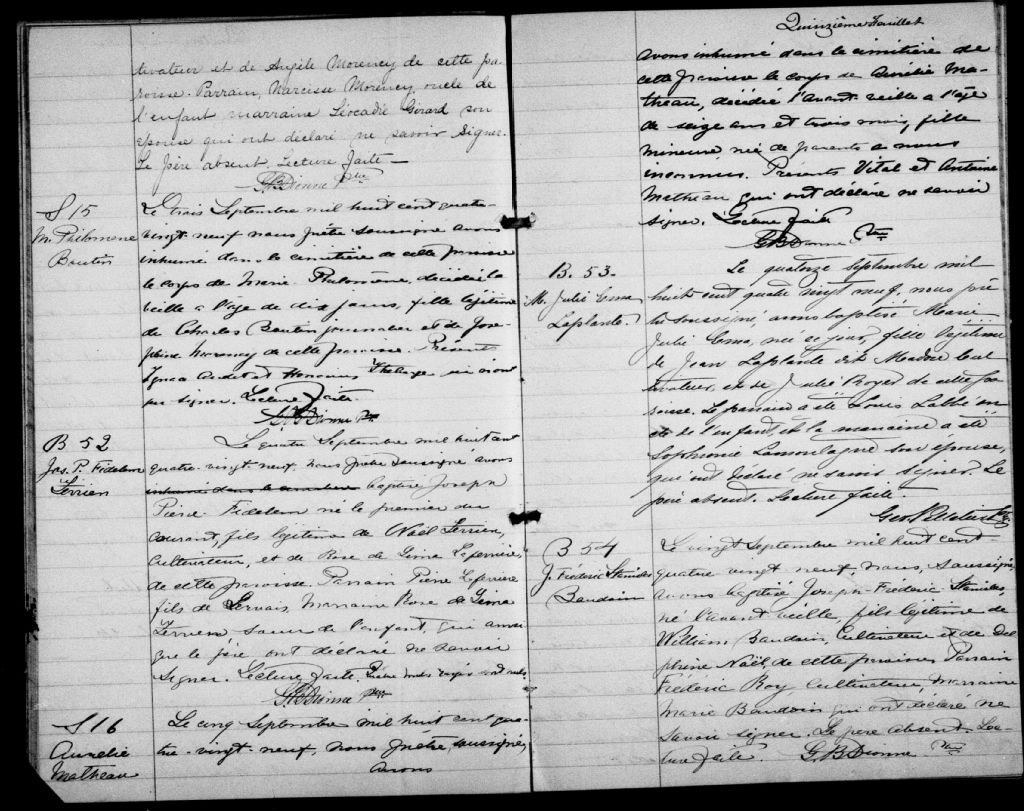 tivateur et de Angèle Morency de cette pa-
roisse. Parrain, Narcisse Morency, oncle de
l'enfant marraine Léocadie Girard son
épouse qui ont déclaré ne savoir signer.
Le père absent. Lecture faite —
G.B. Dionne Ptre
S 15
M. Philomene
Boutin
Le trois Septembre mil huit cent quatre-
vingt-neuf nous prêtre soussigné avons
inhumé dans le cimetière de cette paroisse
le corps de Marie Philomène, décédée la
veille a l'âge de dix jours, fille légitime
de Charles Boutin journalier et de Jose-
phine Morency de cette paroisse. Présents
Ignace Audet et Honorius
pu signer. Lecture faite.
G.B. Dionne Ptre
B 52
Jos. P. Fidelem
Terrien
Le quatre Septembre mil huit cent
quatre-vingt neuf, nous prêtre soussigné avons
inhumé dans le cimetière baptisé Joseph
Pierre Fidelem né le premier du
courant, fils légitime de Noël Terrien,
Cultivateur, et de Rose de Lima Leferrière,
de cette paroisse. Parrain Pierre Leferrière
fils de Gervais, Marraine Rose de Lima
Terrien, sœur de l'enfant, qui ainsi
que le père ont déclaré ne savoir
signer. Lecture faite. mots rayés sont nuls
G.B. Dionne Ptre
S 16
Aurelie
Matheau
Le cinq Septembre mil huit cent qua-
tre-vingt neuf, nous prêtre soussigné,
avons
Quinzième feuillet
avons inhumé dans le cimetière de
cette paroisse le corps de Aurélie Ma-
theau, décédée l'avant veille a l'âge
de seize ans et trois mois, fille
mineure née de parents a nous
inconnus. Présents Vital et Antoine
Matheau qui ont déclaré ne savoir
signer. Lecture faite
G.B. Dionne Ptre
B. 53.
M. Julie Ema
Laplante.
Le quatorze septembre mil
huit cent quatre vingt neuf, nous prê
tre soussigné, avons baptisé Marie
Julie Ema, née ce jour, fille légitime
de Jean Laplante dit Madore cul
tivateur, et de Julie Royer de cette pa
roisse. Le parrain a été Louis Labbé on
cle de l'enfant et la marraine a été
Sophronie Lamontagne son épouse,
qui ont déclaré ne savoir signer. Le
père absent. Lecture faite.
Geo Ptre
B 54
J. Fréderic Stanislas
Baudoin
Le vingt Septembre mil huit cent-
quatre vingt neuf, nous, soussigné,
avons baptisé Joseph-Fréderic Stanislas,
né l'avant veille, fils légitime de
William Baudoin, Cultivateur et de Del
phine Noël, de cette paroisse, Parrain
Fréderic Roy, Cultivateur, Marraine
Marie Baudoin qui ont déclaré ne
savoir signer. Le père absent. Lec-
ture faite. G. B Dionne Ptre